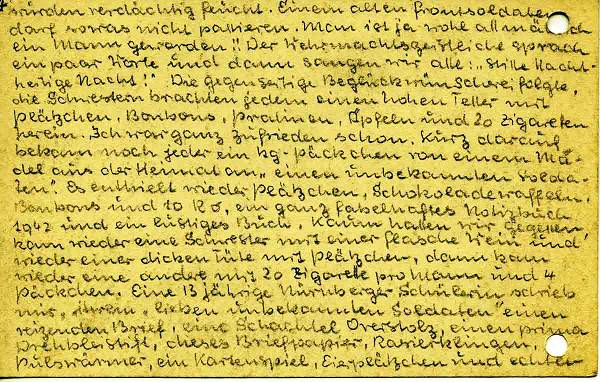 würden verdächtig feucht. Einem alten Frontsoldaten
darf sowas nicht passieren. Man ist ja wohl allmählich
ein Mann geworden!! Der Wehrmachtsgeistliche sprach
ein paar Worte und dann sangen wir alle: „Stille Nacht-
heilige Nacht!" Die gegenseitige Beglückwünscherei folgte,
die Schwestern brachten jedem einen hohen Teller mit
Plätzchen, Bonbons, Pralinen, Äpfeln und 20 Zigaretten
herein. Ich war ganz zufrieden schon. Kurz darauf
bekam noch jeder ein kg-Päckchen von einem Mä-
del aus der Heimat an „einen unbekannten Solda-
ten". Es enthielt wieder Plätzchen, Schokoladewaffeln,
Bonbons und 10 Rö, ein ganz fabelhaftes Notizbuch
1942 und ein lustiges Buch. Kaum hatten wir gegessen,
kam wieder eine Schwester mit einer Flasche Wein und
wieder einer dicken Tüte mit Plätzchen, dann kam
wieder eine andere mit 20 Zigarette pro Mann und 4
Päckchen. Eine 13 jährige Nürnberger Schülerin schrieb
mir, „ihrem lieben unbekannten Soldaten" einen
reizenden Brief, eine Schachtel Overstolz, einen prima
Drehbleistift, dieses Briefpapier, Rasierklingen,
Pulswärmer, ein Kartenspiel, Eierplätzchen und echten